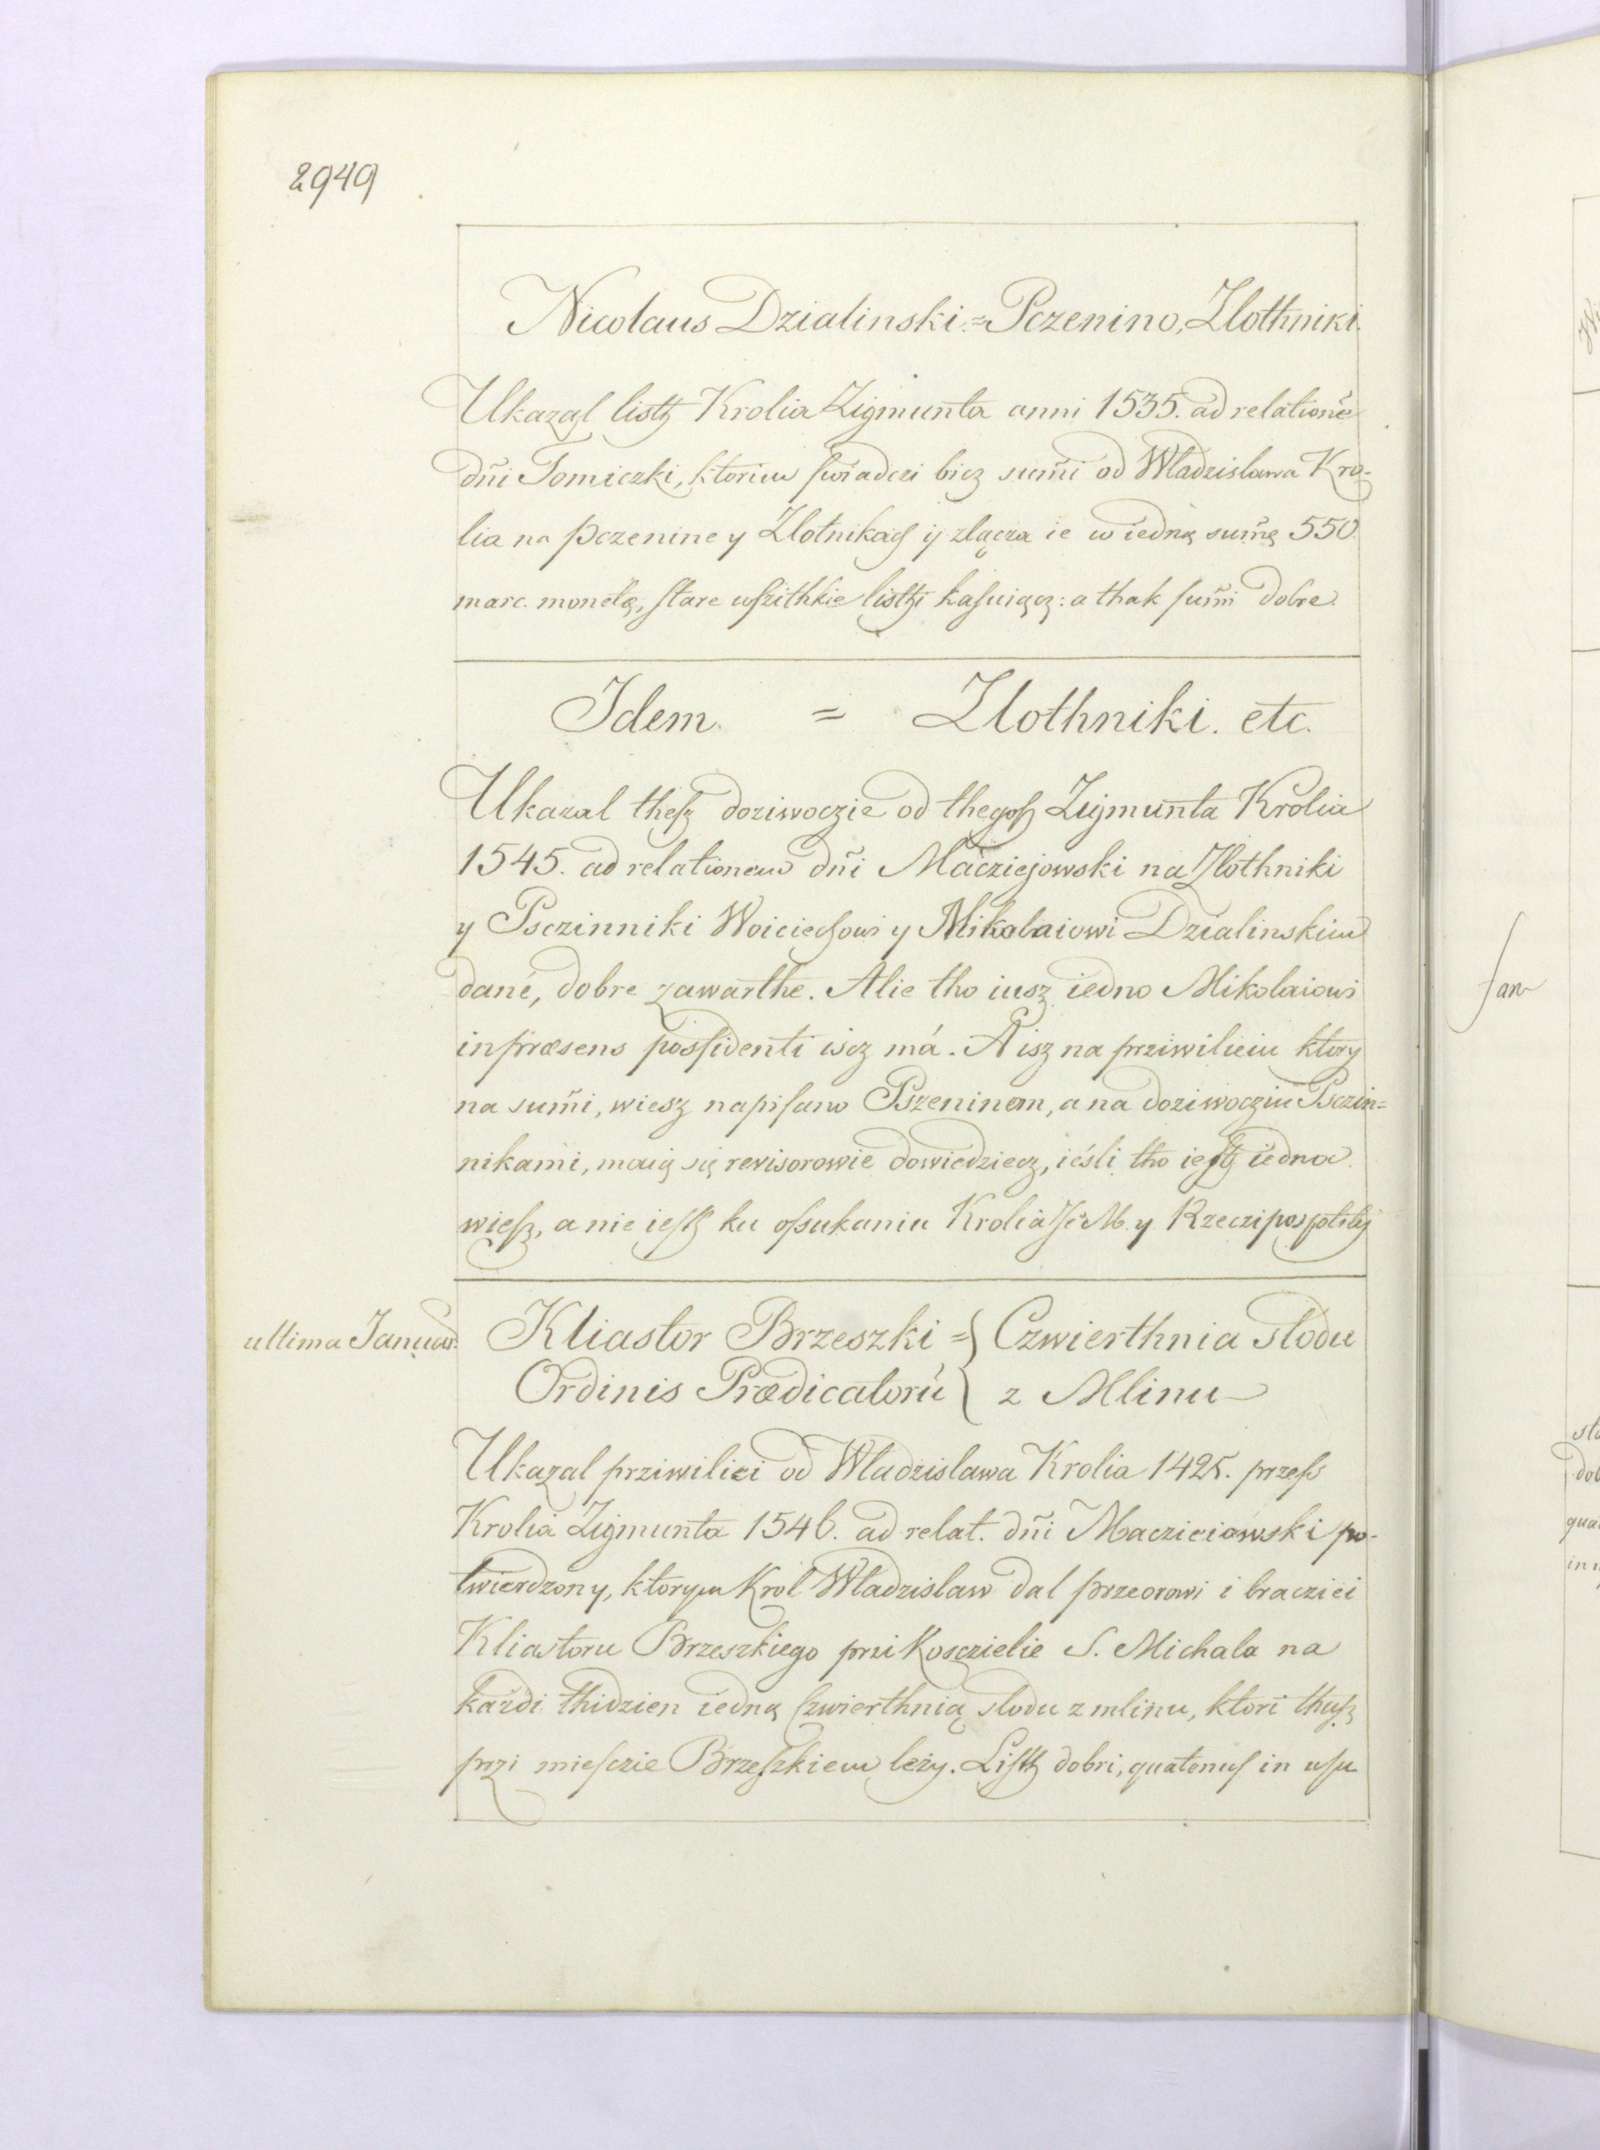 2949
Nicolaus Dzialinski = Pczenino, Zlothniki.
Ukazal listh Krolia Zigmunta anni 1535. ad relatione
dñi Tomiczki, ktoriem swiadczi bicz sum̃i od Wladzislawa Kro-
lia na pczenine y Zlotnikach ij zlącza ie w iedną sum̃ę 550
marc. monetę, stare wszithkie listhi kasuiącz: a thak sum̃i dobre
Idem. = Zlothniki. etc.
Ukazal thesz doziwoczie od thegosz Zigmunta Krolia
1545. ad relationem dñi Macziejowski na Zlothniki
y Psczinniki Woiciechowi y Mikolaiowi Dzialinskim
dané, dobre zawarthe. Alie tho iusz iedno Mikolaiowi
in præsens possidenti iscz má. A isz na prziwilieiu ktory
na sum̃i, wiesz napisano Pszeninem, a na doziwocziu Psczin=
nikami, maią się revisorowie dowiedziecz, ieśli tho iesth iedna
wiesz, a nie iesth ku oszukaniu Krolia Je M. y Rzeczipospolitej
ultima Januar.
Kliastor Brzeszki = { Czwierthnia slodu
Ordinis Prædicatorũ { z Mlinu
Ukazal prziwiliei od Wladzislawa Krolia 1425. przess
Krolia Zigmunta 1546. ad relat. dñi Macziciowski po-
twierdzony, ktorym Krol Wladzislaw dal przeorowi i braciziei
Kliastoru Brzeszkiego przi Kosczielie S. Michala na
każdi thidzien iedną czwierthnią slodu z mlinu, ktori thusz
przi miesczie Brzeszkiem leży. Listh dobri, quatenus in usu